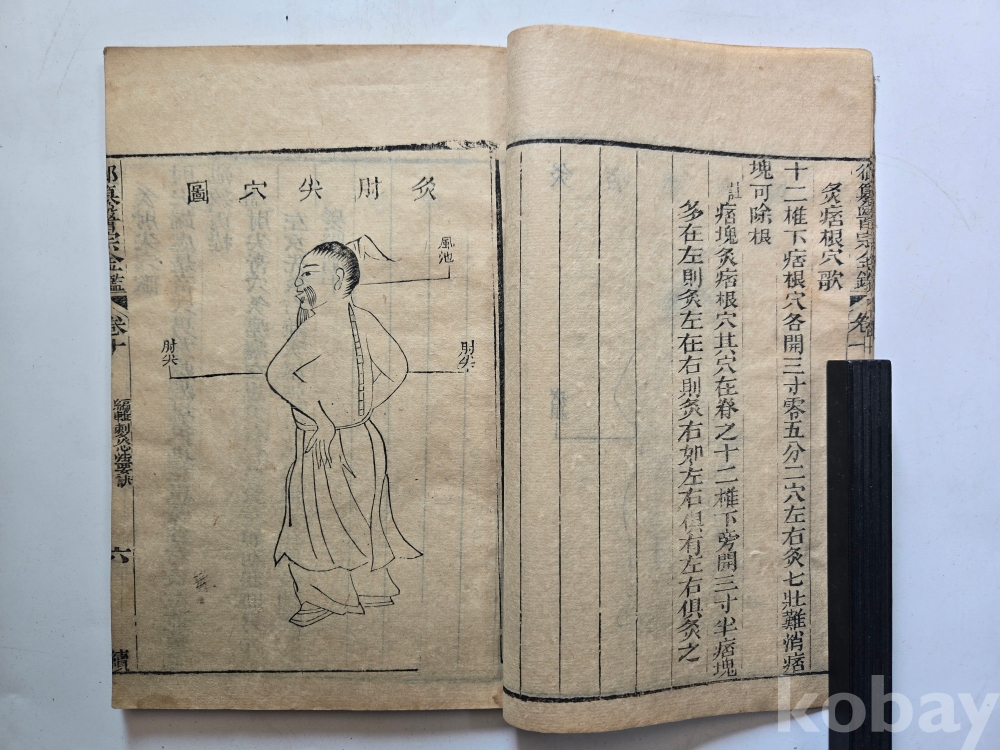 灸痞根穴歌
十二椎下痞根穴各開三寸零五分二穴左右灸七壯難消痞
塊可除根
註痞塊灸痞根穴其穴在脊之十二椎下旁開三寸半痞塊
多在左則灸左在右則灸右如左右俱有左右俱灸之
灸肘尖穴圖
風池
肘尖
肘尖
御纂醫宗金鑑
卷十
編輯刺灸心法要訣
六
續
kobay